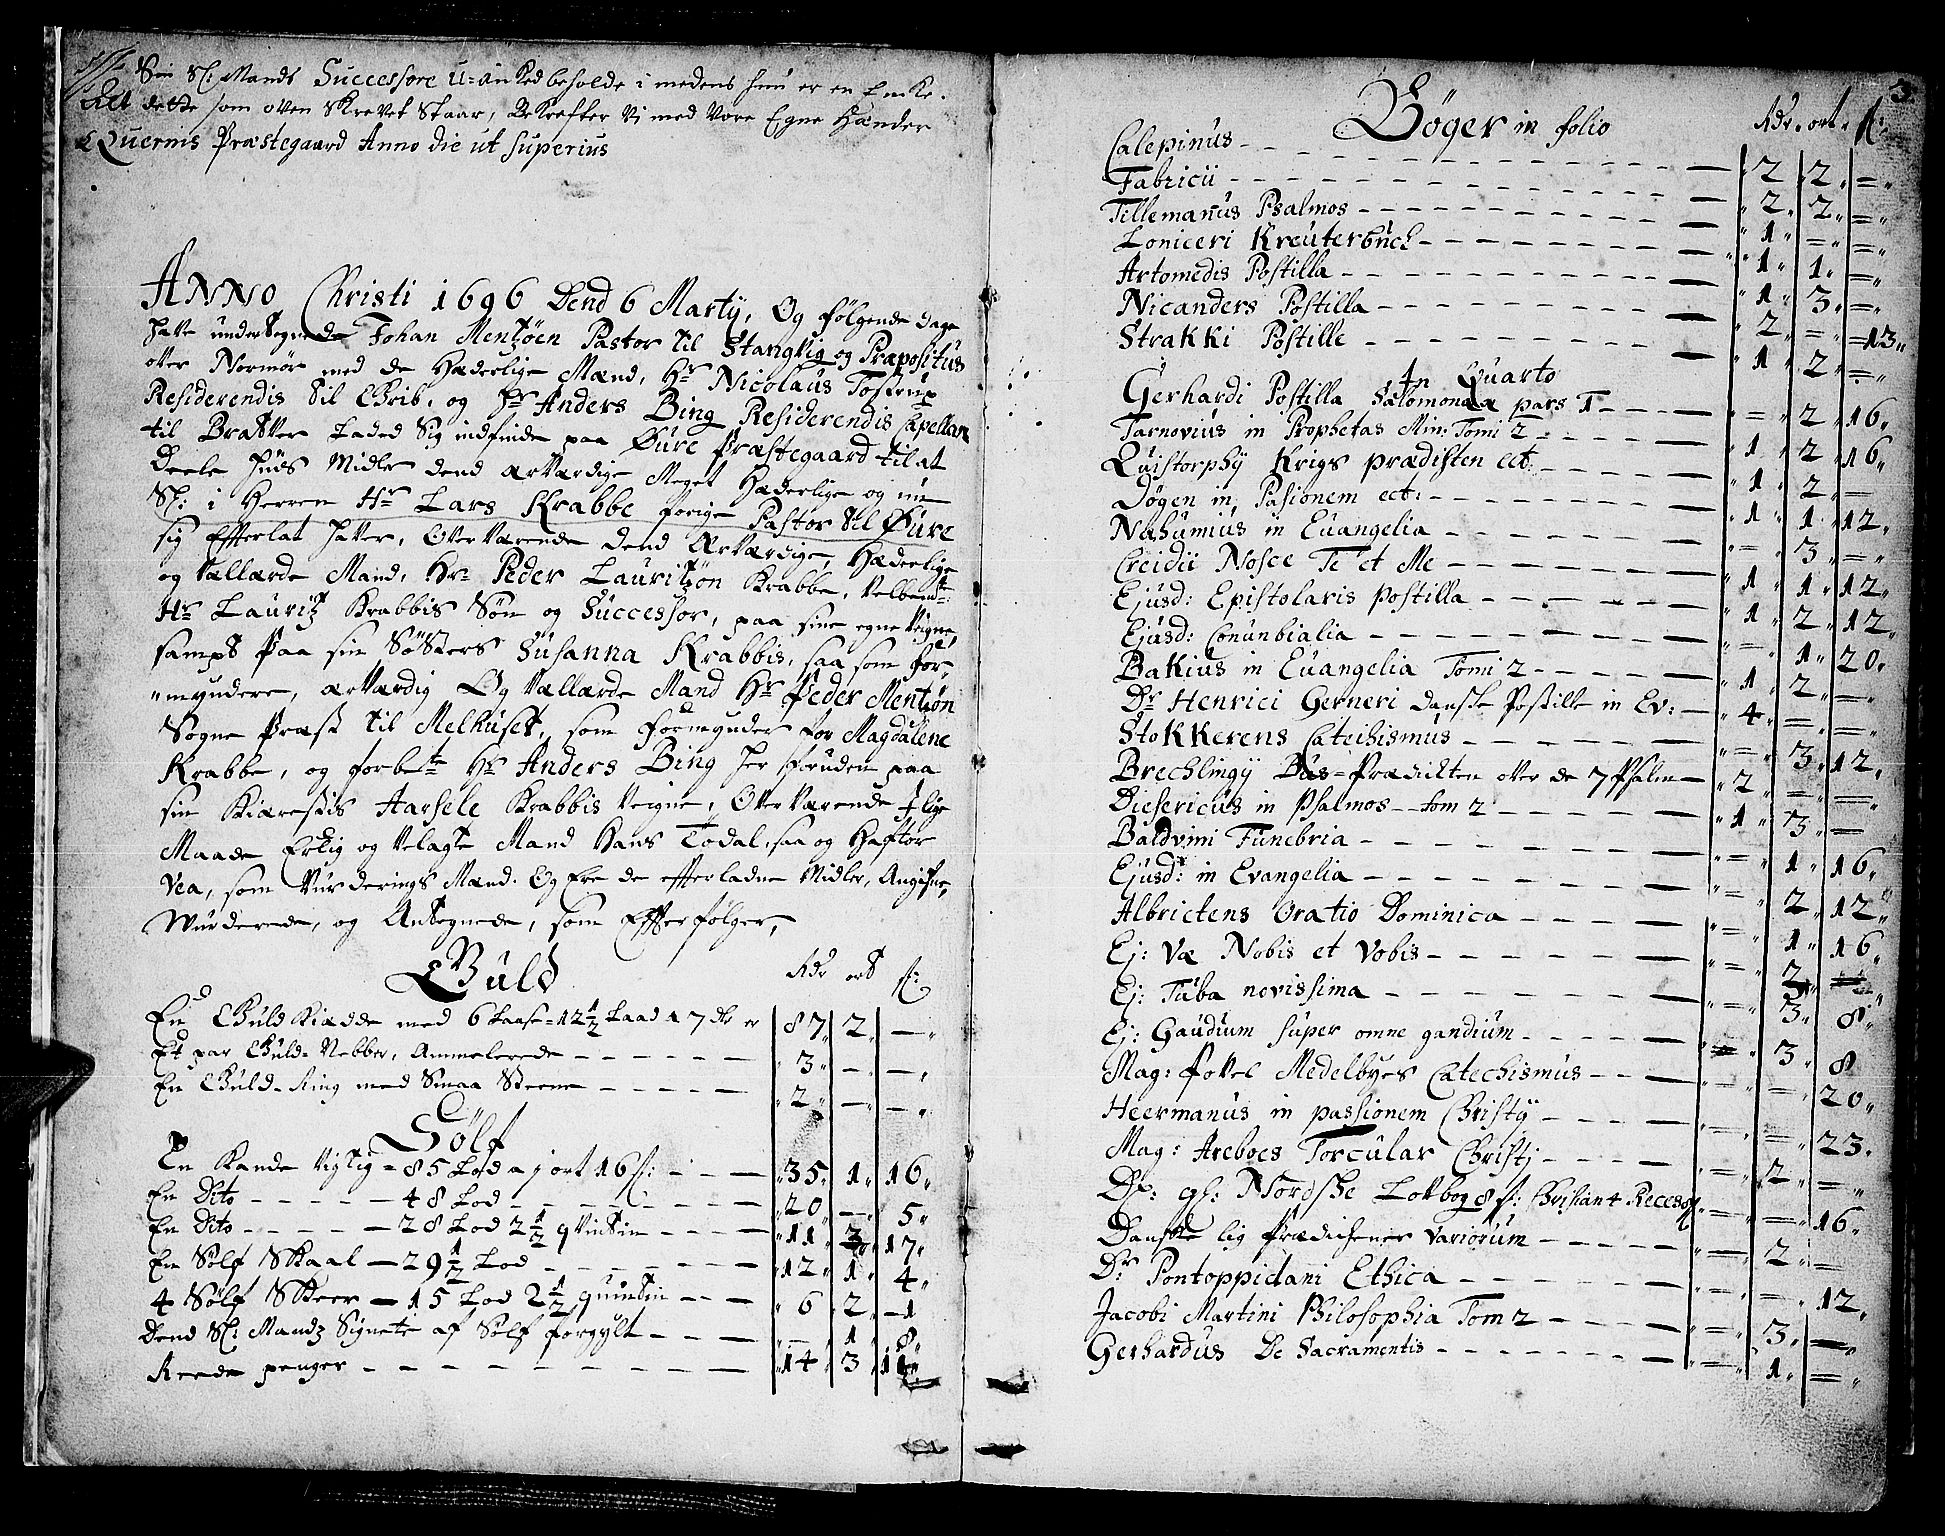 Sin Sl: Mands Successore u-anked beholde i medens hun er en Enke.
At dette som oven skrevet staar, Bekrefter Vi med vore Egne Hænder
Quernis Præstegaard Anno die ut superius
ANNO Christi 1696 Dend 6 Martij, Og følgende dage
have undertegnede Johan Mentzøen Pastor til Stangvig og Præpositus
over Normør med de Hæderlige Mænd, Hr Nicolaus Tostrup
Residerendis til Grib, og Hr Anders Bing Residerendis Capellan
til Brasker Laded Sig indfinde paa Øure Præstegaard til at
Deele huds Midler dend ærværdige Meget Hæderlige og nu
Sl: i Herren Hr Lars Krabbe forige Pastor til Øure
sig Effterlat haver, Overværende dend Ærværdige, Hæderlige
og Vællærde Mand, Hr Peder Lauritzøn Krabbe, Velbemte:
Hr Lauritz Krabbis Søn og Successor, paa sine egne Veigne,
sampt paa sin Søsters Susanna Krabbis, saa som for-
myndere, ærværdig Og Vællærde Mand Hr Peder Mentzøn
Sogne Præst til Melhuset, som Formynder for Magdalene
Krabbe, og forbete Hr Anders Bing her foruden paa
sin Kiærestis Aarsele Krabbis Veigne, Overværende I lige
Maade Erlig og Velagte Mand Hans Todal, saa og Haftor
Vea, som Vurderings Mænd. Og Ere de effterladne Midler, Angifne,
Wurderede, og Antegnede, som Effterfølger,
Guld Rdr ort s:
En Guld Kiæde med 6 Laase = 12 1/2 Laad a 7 dlr er 87 2 —
Et par Guld-Nebber, Ammelerede 3 — —
En Guld-Ring med Smaa Steene 2 — —
Sølf
En Kande Vigtig = 85 Lod a j ort 16 s: 35 1 16
En Dito 48 Lod 20 — 5
En Dito 28 Lod 2 1/2 qvintin 11 3 17
En Sølf Skaal — 29 1/2 Lod 12 1 4
4 Sølf Skeer — 15 Lod 2 1/2 quintin 6 2 — 1
Dend Sl: Mandz Signete af Sølf forgylt — 1 8
Reede penger 14 3 11
3
Bøger in folio Rdr. ort. s:
Calepinus 2 2 =
Fabricii 2 2 =
Tillemanus Psalmos 1 = =
Loniceri Kreuterbuch 1 1 =
Artomedis Postilla 1 3 =
Nicanders Postilla 2 = = 13
Strakki Postille 1 2 =
In Quarto
Gerhardi Postilla Salomonææ pars 1 = 2 16
Tarnovius in Prophetas Min: Tomi 2 1 2 16
Quistorphij Krigs prædikten ect: 1 2 =
Døgen in Pasionem ect: 1 1 12
Nahumius in Euangelia = 3 =
Creidii Nosce Te et Me 1 1 12
Ejusd: Epistolaris Postilla 1 2 12
Ejusd: Conunbialia = 1 20
Bakius in Euangelia Tomi 2 1 2 =
Dr Henrici Gerneri Danske Postille in Ev: 4 = =
Stokkerens Catechismus = 3 12
Brechlingij Bus-Prædickten over de 7 Psalm 2 = =
Diesericus in Psalmos Tom 2 1 3 =
Baldvini Funebria = 1 16
Ejusd: in Evangelia = 2 12
Albrictens Oratio Dominica = 1 16
Ej: Væ Nobis et Vobis = 2 =
Ej: Tuba novissima = 3 8
Ej: Gaudium super omne gaudium = 3 8
Mag: Povel Medelbyes Catechismus = = 20
Heermanus in passionem Christij = = 23
Mag: Areboes Torcular Christj = 2 =
Dr: gl: Nordske Lovbog 8 s: Christian 4 Recess = = 16
Danske lig Prædickener Variorum = 2 =
Dr Pontoppidani Ethica = = 12
Jacobi Martini Philosophia Tom 2 = 3 =
Gerhardus De Sacramentis = 1 =